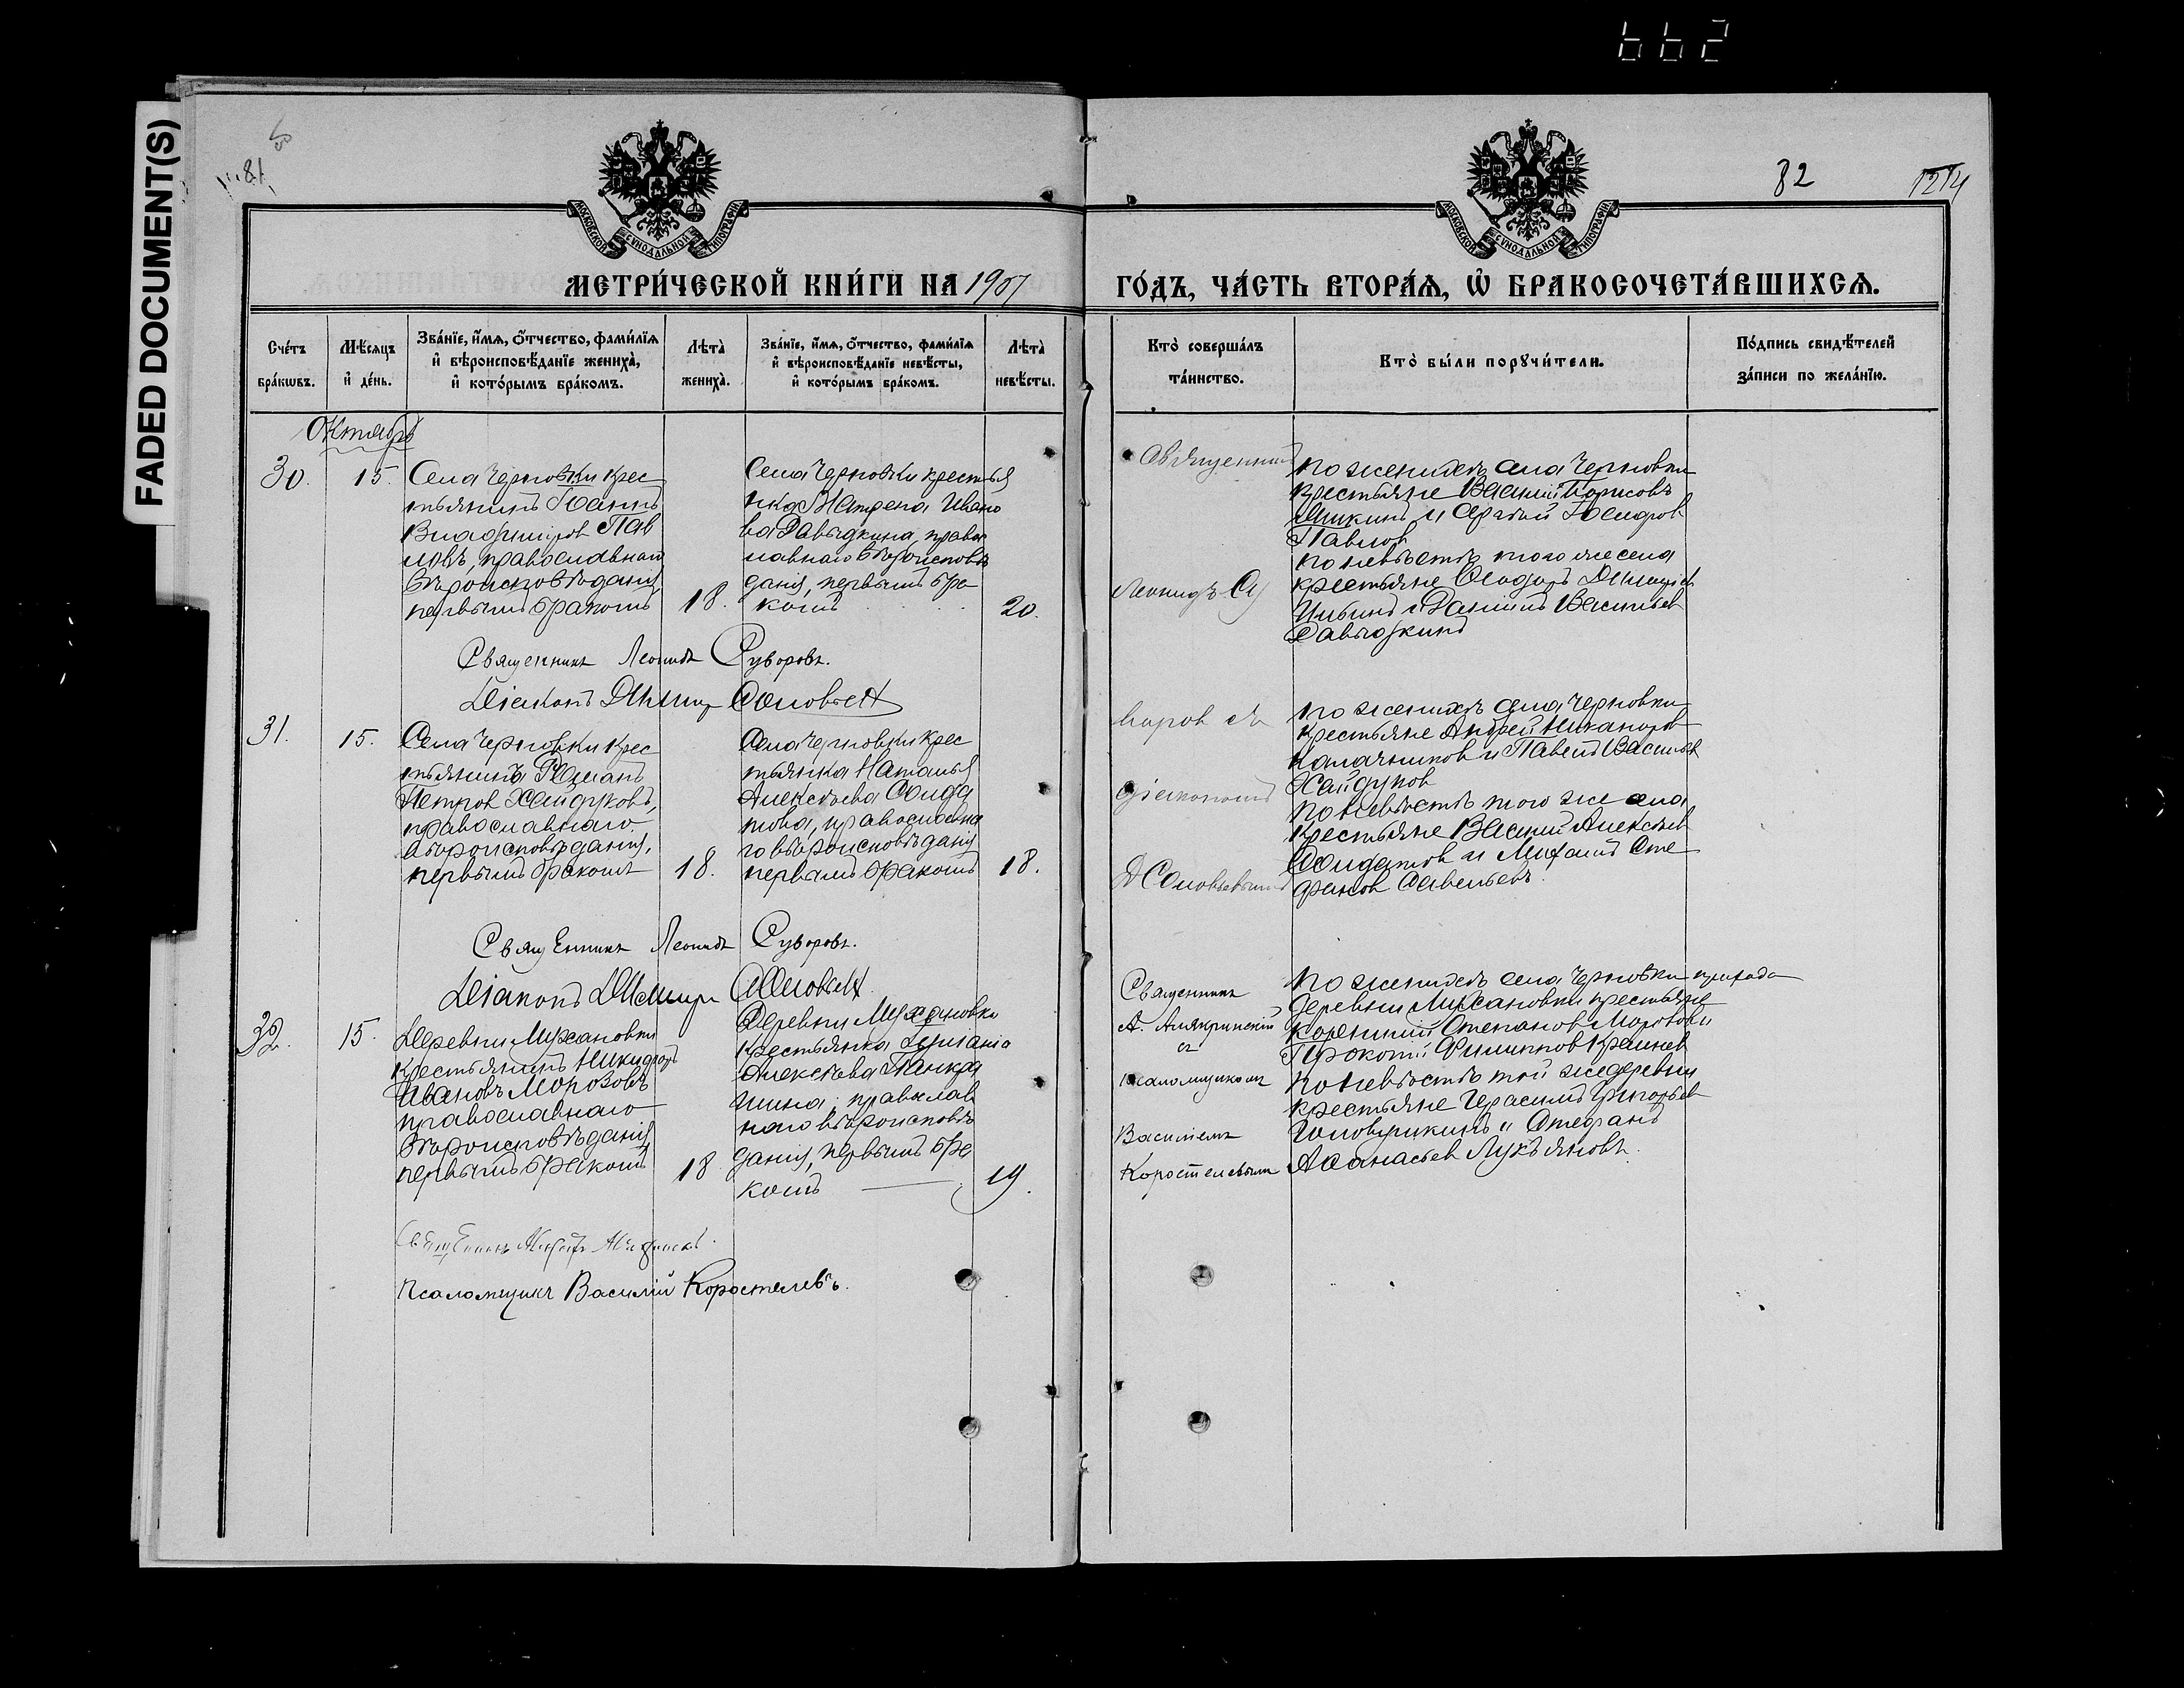 FADED DOCUMENT(S)
662
81
82
1214
МОСКОВСКОЙ СѴНОДАЛЬНОЙ ТИПОГРАФІИ
МОСКОВСКОЙ СѴНОДАЛЬНОЙ ТИПОГРАФІИ
МЕТРИ́ЧЕСКОЙ КНИ́ГИ НА 1907
ГО́ДЪ, ЧА́СТЬ ВТОРА́Ѧ, Ѽ БРАКОСОЧЕТА́ВШИХСѦ.
Сче́тъ бра́кѡвъ.
Мѣ́сѧцъ и҆ де́нь.
Зва́нїе, и҆́мѧ, ѻ҆́тчество, фами́лїѧ
и҆ вѣроисповѣ́данїе жениха̀,
и҆ кото́рымъ бра́комъ.
Лѣта̀ жениха̀.
Зва́нїе, и҆́мѧ, ѻ҆́тчество, фами́лїѧ
и҆ вѣроисповѣ́данїе невѣ́сты,
и҆ кото́рымъ бра́комъ.
Лѣта̀ невѣ́сты.
Кто̀ соверша́лъ та́инство.
Кто̀ бы́ли порꙋчи́тели.
По́дпись свидѣ́телей
за́писи по жела́нїю.
Октябрь
30.
15.
Села Черновки крес
тьянинъ Іоаннъ
Владиміров Пав
ловъ, православнаго
вѣроисповѣданія,
первымъ бракомъ
18.
Села Черновки крестья
нка Матрена Ивано
ва Давыдкина, правос
лавнаго вѣроисповѣ
данія, первымъ бра
комъ
20.
Священник
Леонидъ Су
по женихѣ села Черновки
крестьяне Василій Борисовъ
Павлов
по невѣстѣ того же села
крестьяне Ѳеодоръ Дмитріев
Ильинъ и Даніилъ Васильев
Давыдкинъ
Священникъ Леонидъ Суворовъ.
Діаконъ Дмитр Соловьев
31.
15.
Села Черновки крес
тьянинъ Романъ
Петров Хайдуковъ,
православнаго
вѣроисповѣданія,
первымъ бракомъ
18.
Села Черновки крес
тьянка Наталья
Алексѣева Солда
това, православна
го вѣроисповѣданія
первымъ бракомъ
18.
воров съ
діакономъ
Д Соловьевымъ
по женихѣ села Черновки
крестьяне Андрей Никаноров
Калачников и Павелъ Васильев
Хайдуков
по невѣстѣ того же села
крестьяне Василій Алексѣев
Солдатов и Михаилъ Сте
фанов Савельевъ.
Священникъ Леонидъ Суворовъ.
Діаконъ Дмитр Соловьев
32.
15.
Деревни Мухановки
крестьянинъ Никифоръ
Ивановъ Морозовъ
православнаго
вѣроисповѣданія,
первымъ бракомъ
18
Деревни Мухановки
крестьянка
Алексѣева Панкра
шина православ
наго вѣроисповѣ
данія, первымъ бра
комъ
19.
Священникъ
А. Алякринскій
съ
псаломщикомъ
Василіемъ
Коростелевымъ
по женихѣ села Черновки прихода
деревни Мухановки крестьяне
Корнилій Степанов Морозов и
Прокопій Филиппов Краснев
по невѣстѣ той же деревни
крестьяне Герасимъ Григорьев
Головушкинъ и Стефанъ
Аѳанасьев Лукьяновъ.
Псаломщикъ Василій Коростелевъ.